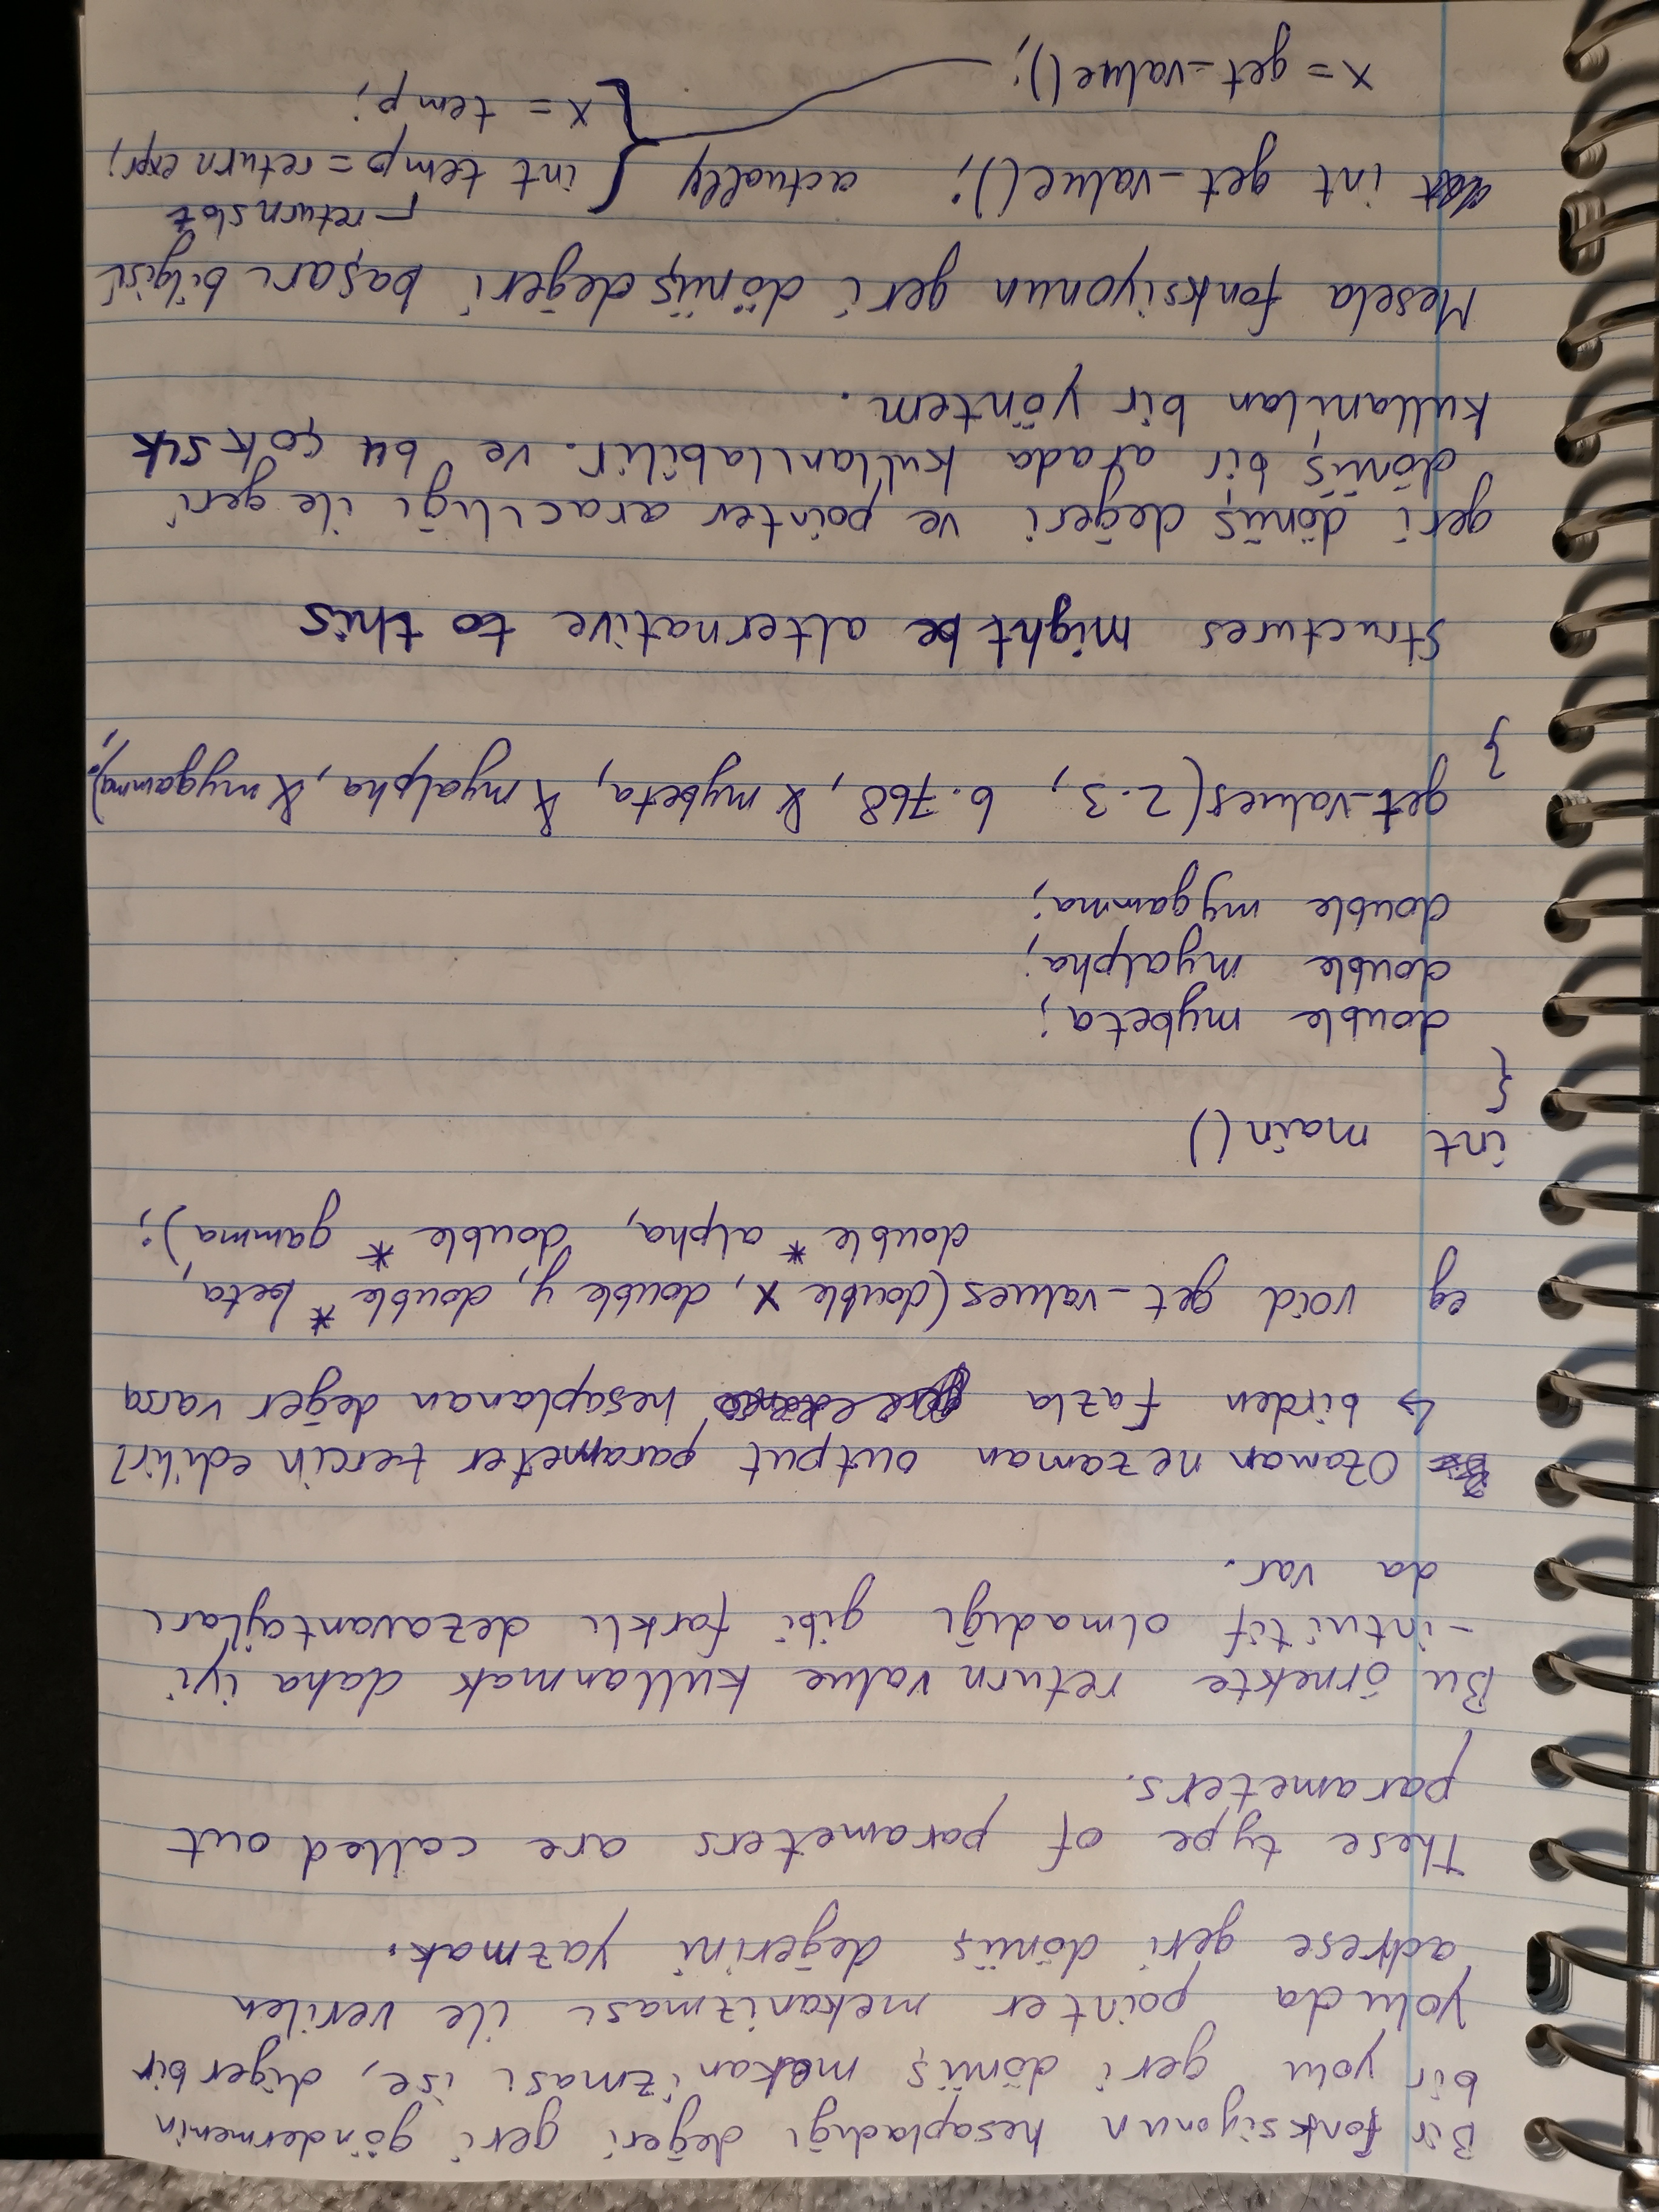 Bir fonksiyonun hesapladığı değeri geri göndermemin
bir yolu geri dönüş mekanizması ise, diger bir
yolu da pointer mekanizması ile verilen
adrese geri dönüş değerini yazmak.
These type of parameters are called out
parameters.
Bu örnekte return value kullanmak daha iyi
- intuitif olmadığı gibi farklı dezavantajları
da var.
Ozaman nezaman output parameter tercin edilir?
↳ birden fazla hesaplanan değer varsa
eg void get_values(double x, double y, double * beta,
double * alpha, double * gamma);
int main()
{
double mybeta;
double myalpha;
double mygamma;
get_values(2.3, 6.768, & mybeta, & myalpha, & mygamma);
}
Structures might be alternative to this
geri dönüş değeri ve pointer aracılığı ile geri
dönüş bir arada kullanılabilir. ve bu çok sık
kullanılan bir yöntem.
Mesela fonksiyonun geri dönüş değeri başarı bilgisi
return slot
int get_value(); actually { int temp = return expr;
x = temp;
x = get_value();